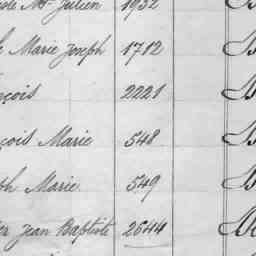 Mie Julien 1932
Marie Joseph 1712
nçois 2221
nçois Marie 548
ph Marie 549
Jean Baptiste 2644